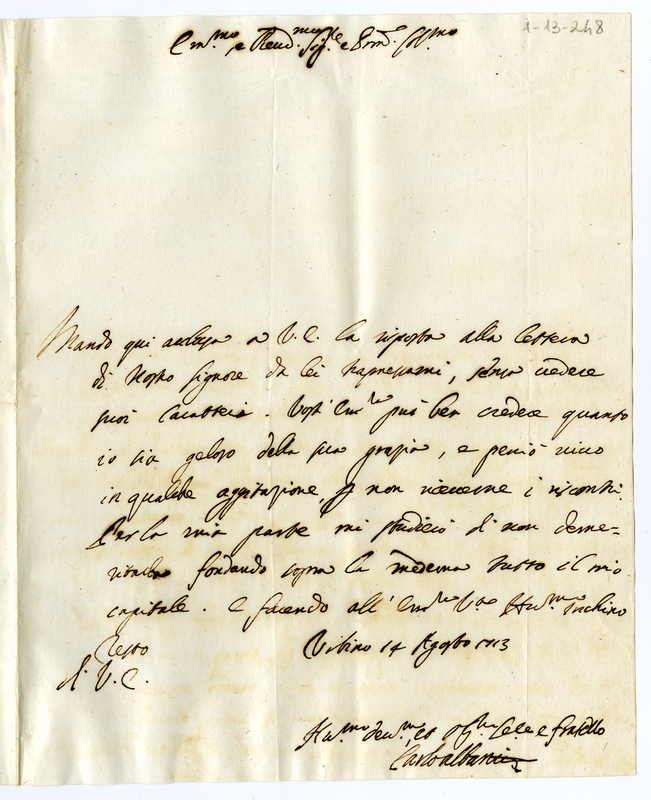 1-13-248
Em.mo e Rend.mo Sig.re e Pron. Col.mo
Mando qui acclusa a V.E. la risposta alla lettera
di Nostro Signore da lei trasmessami, senza vedere
suoi caratteri. Vost' Em.za può ben credere quanto
io sia geloso della sua grazia, e perciò vivo
in qualche aggitazione, non riceverne i riscontri.
Per la mia parte mi studiciò di non deme=
ritarla fondando sopra la medema tutto il mio
capitale. e facendo all' Em.za V.ra Hu.mo inchino
resto
Vrbino 14 Agosto 1713
di V.E.
Hu.mo deu.m et e fratello
Carlo Albani